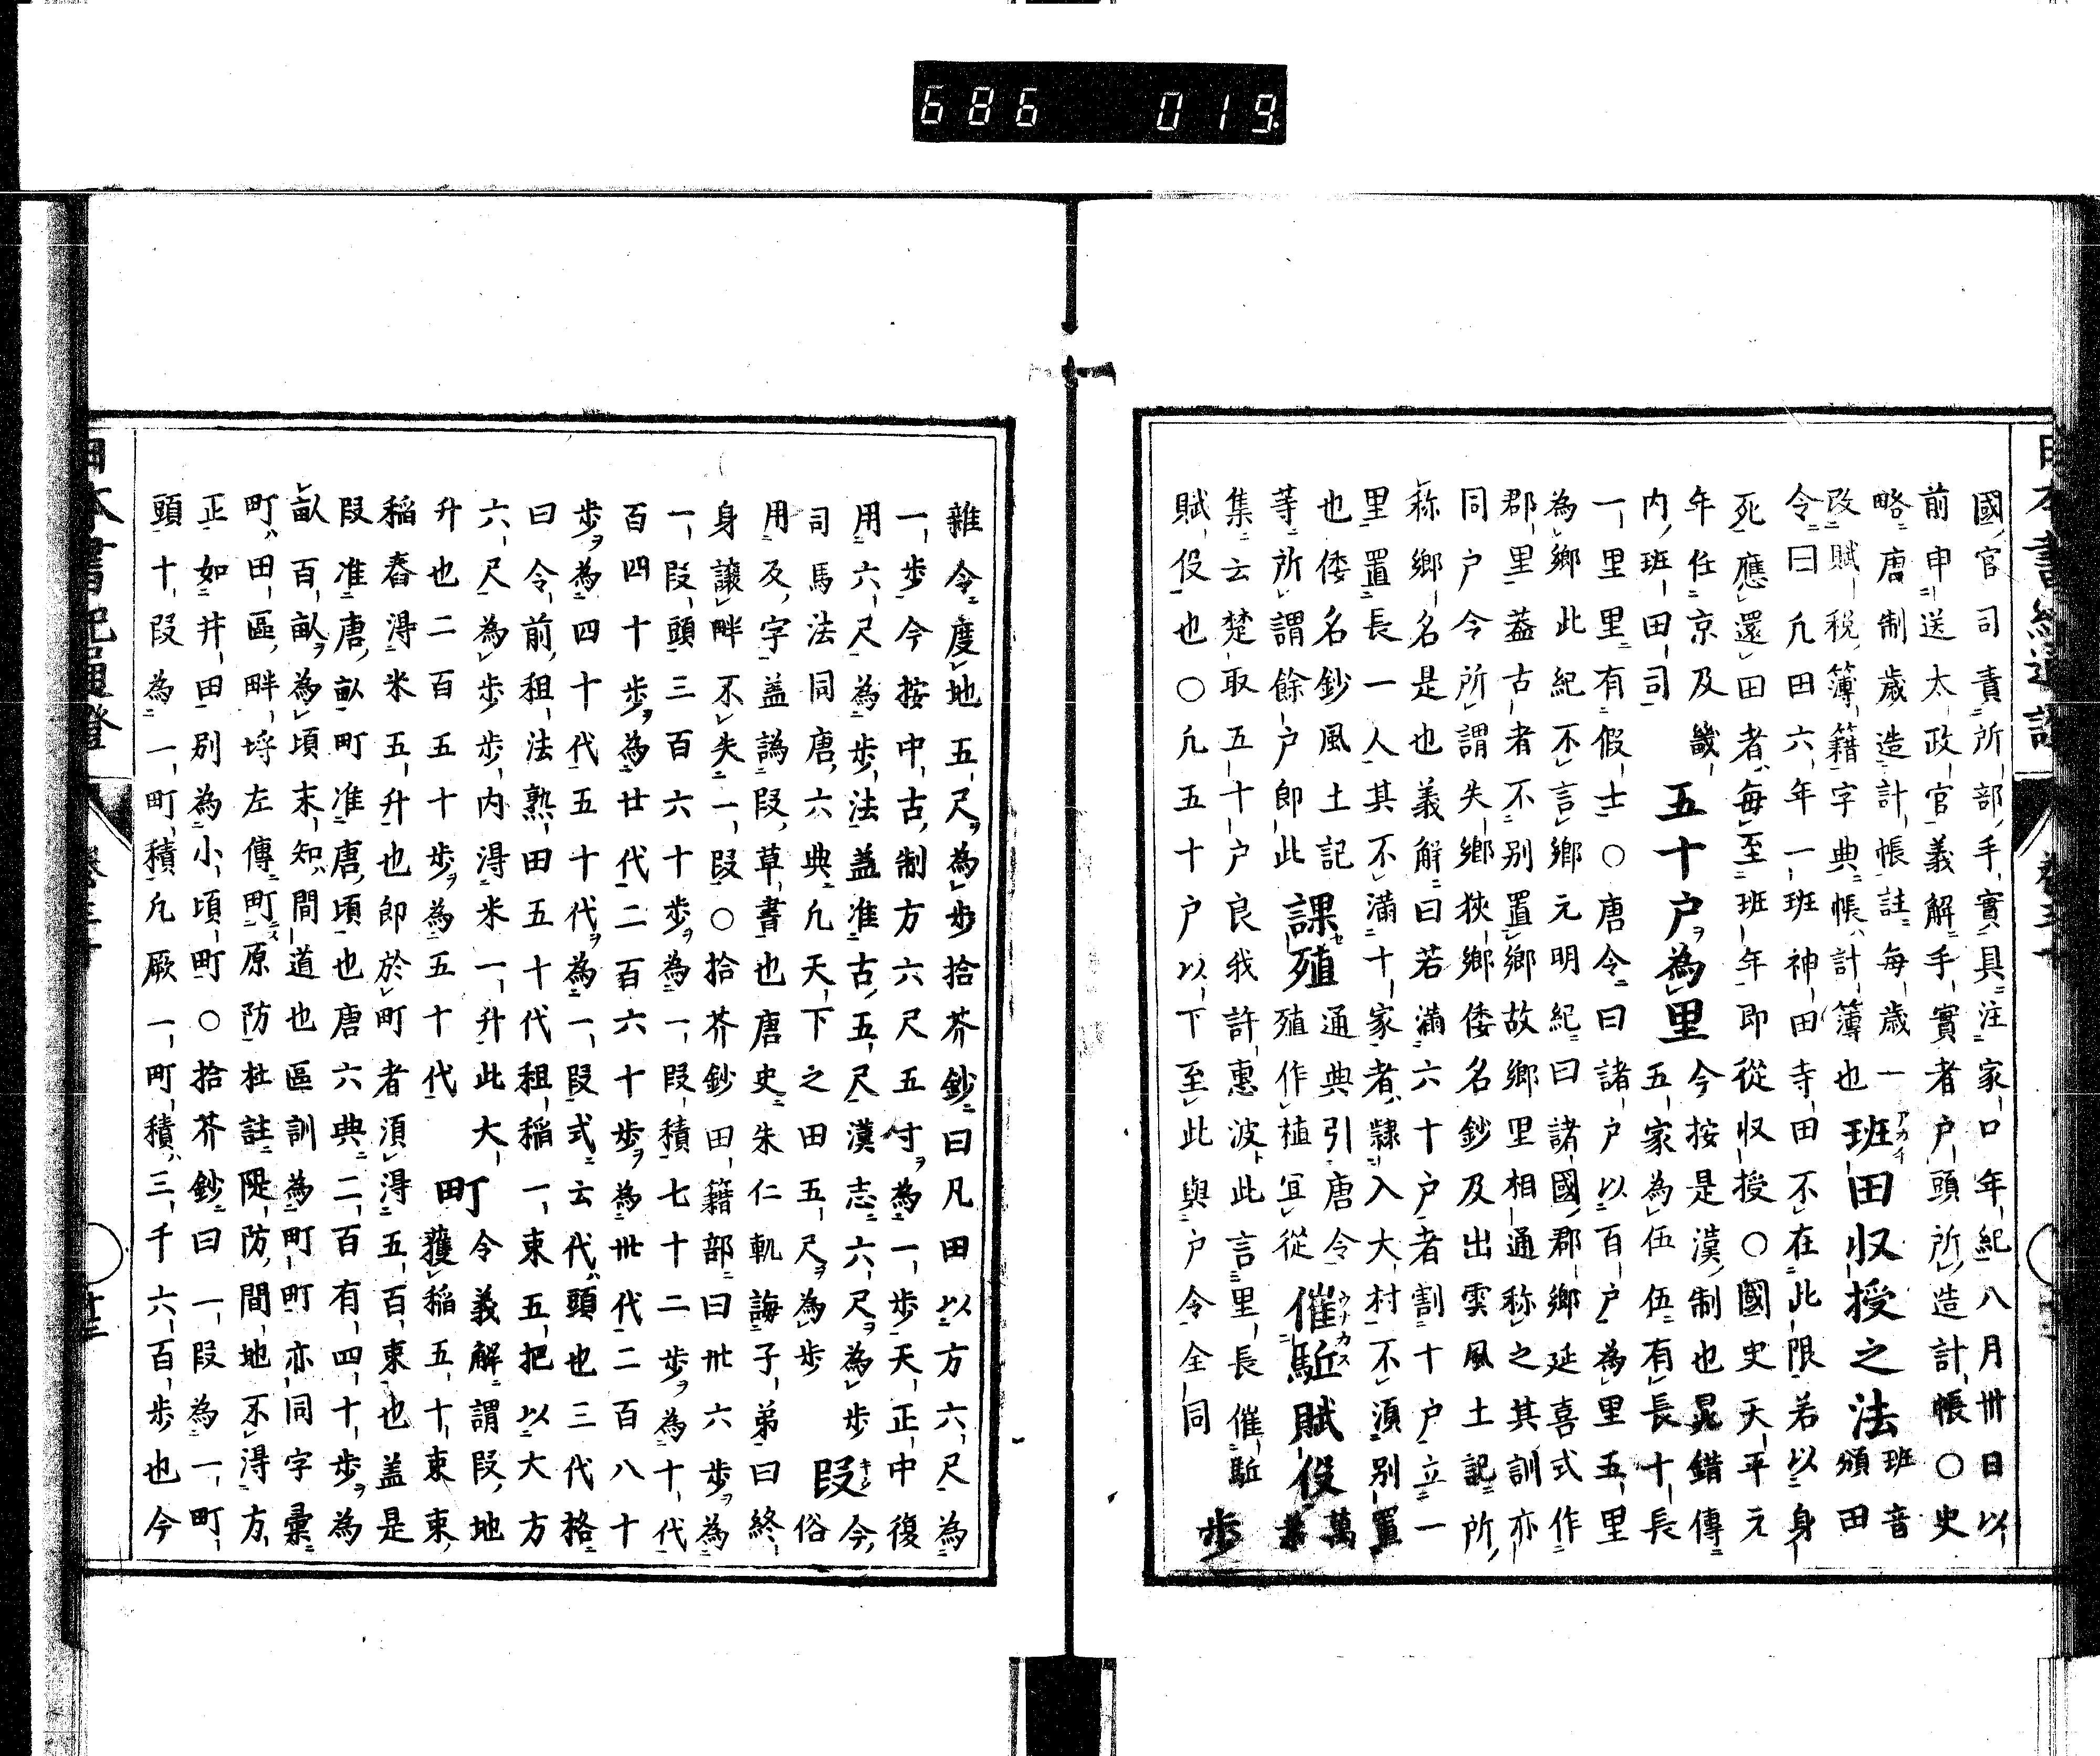 686 019
國官司責所部手實具注家口年紀八月卅日以
前申送太政官義解手實者戶頭所造計帳○史
略唐制歲造計帳註每歲一
改賦稅簿籍字典帳計簿也班田収授之法班音頒田
令曰凡田六年一班神田寺田不在此限若以身
死應還田者每至班年即從収授○國史天平元
年任京及畿
內班田司五十戶為里今按是漢制也晁錯傳
五家為伍伍有長十長
一里里有假士○唐令曰諸戶以百戶為里五里
為鄉此紀不言鄉元明紀曰諸國郡鄉延喜式作
郡里蓋古者不別置鄉故鄉里相通称之其訓亦
同戶令所謂失鄉狹鄉倭名鈔及出雲風土記所
称鄉名是也義解曰若滿六十戶者割十戶立一
里置長一人其不滿十家者隸入大村不須別置
也倭名鈔風土記
等所謂餘戶即此課殖通典引唐令殖作植冝從催駈賦役萬葉
集云楚取五十戶良我許惠波此言里長催駈
賦役也○凡五十戶以下至此與戶令全同步
雜令度地五尺為步拾芥鈔曰凡田以方六尺為
一步今按中古制方六尺五寸為一步天正中復
用六尺為步法蓋准古五尺漢志六尺為步段今
司馬法同唐六典凡天下之田五尺為步俗
用及字蓋譌段草書也唐史朱仁軌誨子弟曰終
身讓畔不失一段○拾芥鈔田籍部曰卅六步為
一段頭三百六十步為一段積七十二步為十代
百四十步為廿代二百六十步為卅代二百八十
步為四十代五十代為一段式云代頭也三代格
曰令前租法熟田五十代租稲一束五把以大方
六尺為步步內淂米一升此大町令義解謂段地
升也二百五十步為五十代獲稲五十束束
稲舂淂米五升也即於町者須淂五百束也蓋是
段准唐畝町准唐頃也唐六典二百有四十步為
畝百畝為頃末知間道也區訓為町町亦同字彙
町田區畔埒左傳町原防杜註隄防間地不淂方
正如井田別為小頃町○拾芥鈔曰一段為一町
頭十段為一町積凡厥一町積三千六百步也今